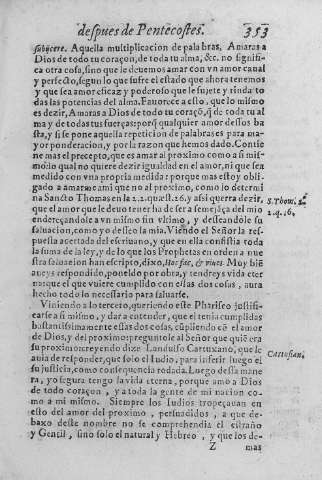 despues de Pentecostes. 353
subijcere. Aquella multiplicacion de palabras, Amaras a
Dios de todo tu coraçon, de toda tu alma, &c. no signifi-
ca otra cosa, sino que le deuemos amar con vn amor caual
y perfecto, segun lo que sufre el estado que ahora tenemos
y que sea amor eficaz y poderoso que le sujete y rinda to
das las potencias del alma. Fauorece a esto, que lo mismo
es dezir, Amaras a Dios de todo tu coraçõ, q̃ de toda tu al
ma y de todas tus fuerças: porq̃ qualquier amor destos ba
sta, y si se pone aquella repeticion de palabras es para ma-
yor ponderacion, y por la razon que hemos dado. Contie
ne mas el precepto, que es amar al proximo como a si mis-
mo: lo qual no quiere dezir igualdad en el amor, ni que sea
medido con vna propria medida: porque mas estoy obli-
gado a amarme a mi que no al proximo, como lo determi
na Sancto Thomas en la 2.2. quæst. 26. y assi querra dezir,
que el amor que le deuo tener ha de ser a semejãça del mio
endereçandole a vn mismo fin vltimo, y desseandole su
saluacion, como yo desseo la mia. Viendo el Señor la res-
puesta acertada del escriuano, y que en ella consistia toda
la suma de la ley, y de lo que los Prophetas en orden a nue
stra saluacion han escripto, dixo, Hoc fac, & viues. Muy biẽ
aueys respondido, poneldo por obra, y tendreys vida eter
na: porque el que viuiere cumplido con essas dos cosas, aura
hecho todo lo necessario para saluarse.
Viniendo a lo tercero, queriendo este Phariseo justifi-
carse a si mismo, y dar a entender, que el tenia cumplidas
bastantissimamente estas dos cosas, cũpliendo cõ el amor
de Dios, y del proximo: preguntole al Señor que quiẽ era
su proximo: creyendo dize Landulfo Cartuxano, que le
auia de responder, que solo el Iudio, para inferir luego el
su justicia, como consequencia rodada. Luego dessa mane
ra, yo segura tengo la vida eterna, porque amo a Dios
de todo coraçon, y a toda la gente de mi nacion co-
mo a mi mismo. Siempre los Iudios tropeçauan en
esto del amor del proximo, persuadidos, a que de-
baxo deste nombre no se comprehendia el estraño
y Gentil, sino solo el natural y Hebreo, y que los de-
Z mas
S. Thom. 2.
2. q. 26.
Cartusian.